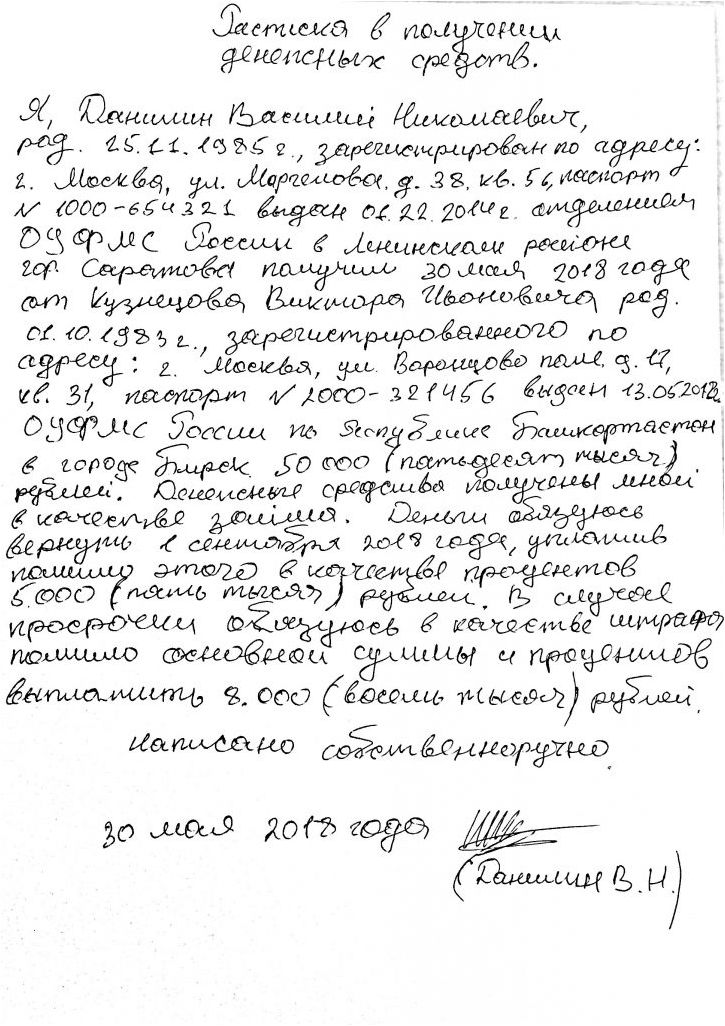 Расписка в получении
денежных средств.
Я, Данилин Василий Николаевич,
род. 25.11.1985 г., зарегистрирован по адресу:
г. Москва, ул. Маргелова, д. 38, кв. 56, паспорт
N 1000-654321 выдан 01.22.2014 г. отделением
ОУФМС России в Ленинском районе
гор. Саратова получил 30 мая 2018 года
от Кузнецова Виктора Ивановича род.
01.10.1983 г., зарегистрированного по
адресу: г. Москва, ул. Воронцово поле, д. 17,
кв. 31, паспорт N 2000-321456 выдан 13.05.2013
ОУФМС России по Республике Башкортостан
в городе Бирск 50 000 (пятьдесят тысяч)
рублей. Денежные средства получены мной
в качестве займа. Деньги обязуюсь
вернуть 1 сентября 2018 года, уплатив
помимо этого в качестве процентов
5.000 (пять тысяч) рублей. В случае
просрочки обязуюсь в качестве штрафа
помимо основной суммы и процентов
выплатить 8.000 (восемь тысяч) рублей.
написано собственноручно.
30 мая 2018 года
(Данилин В.Н.)